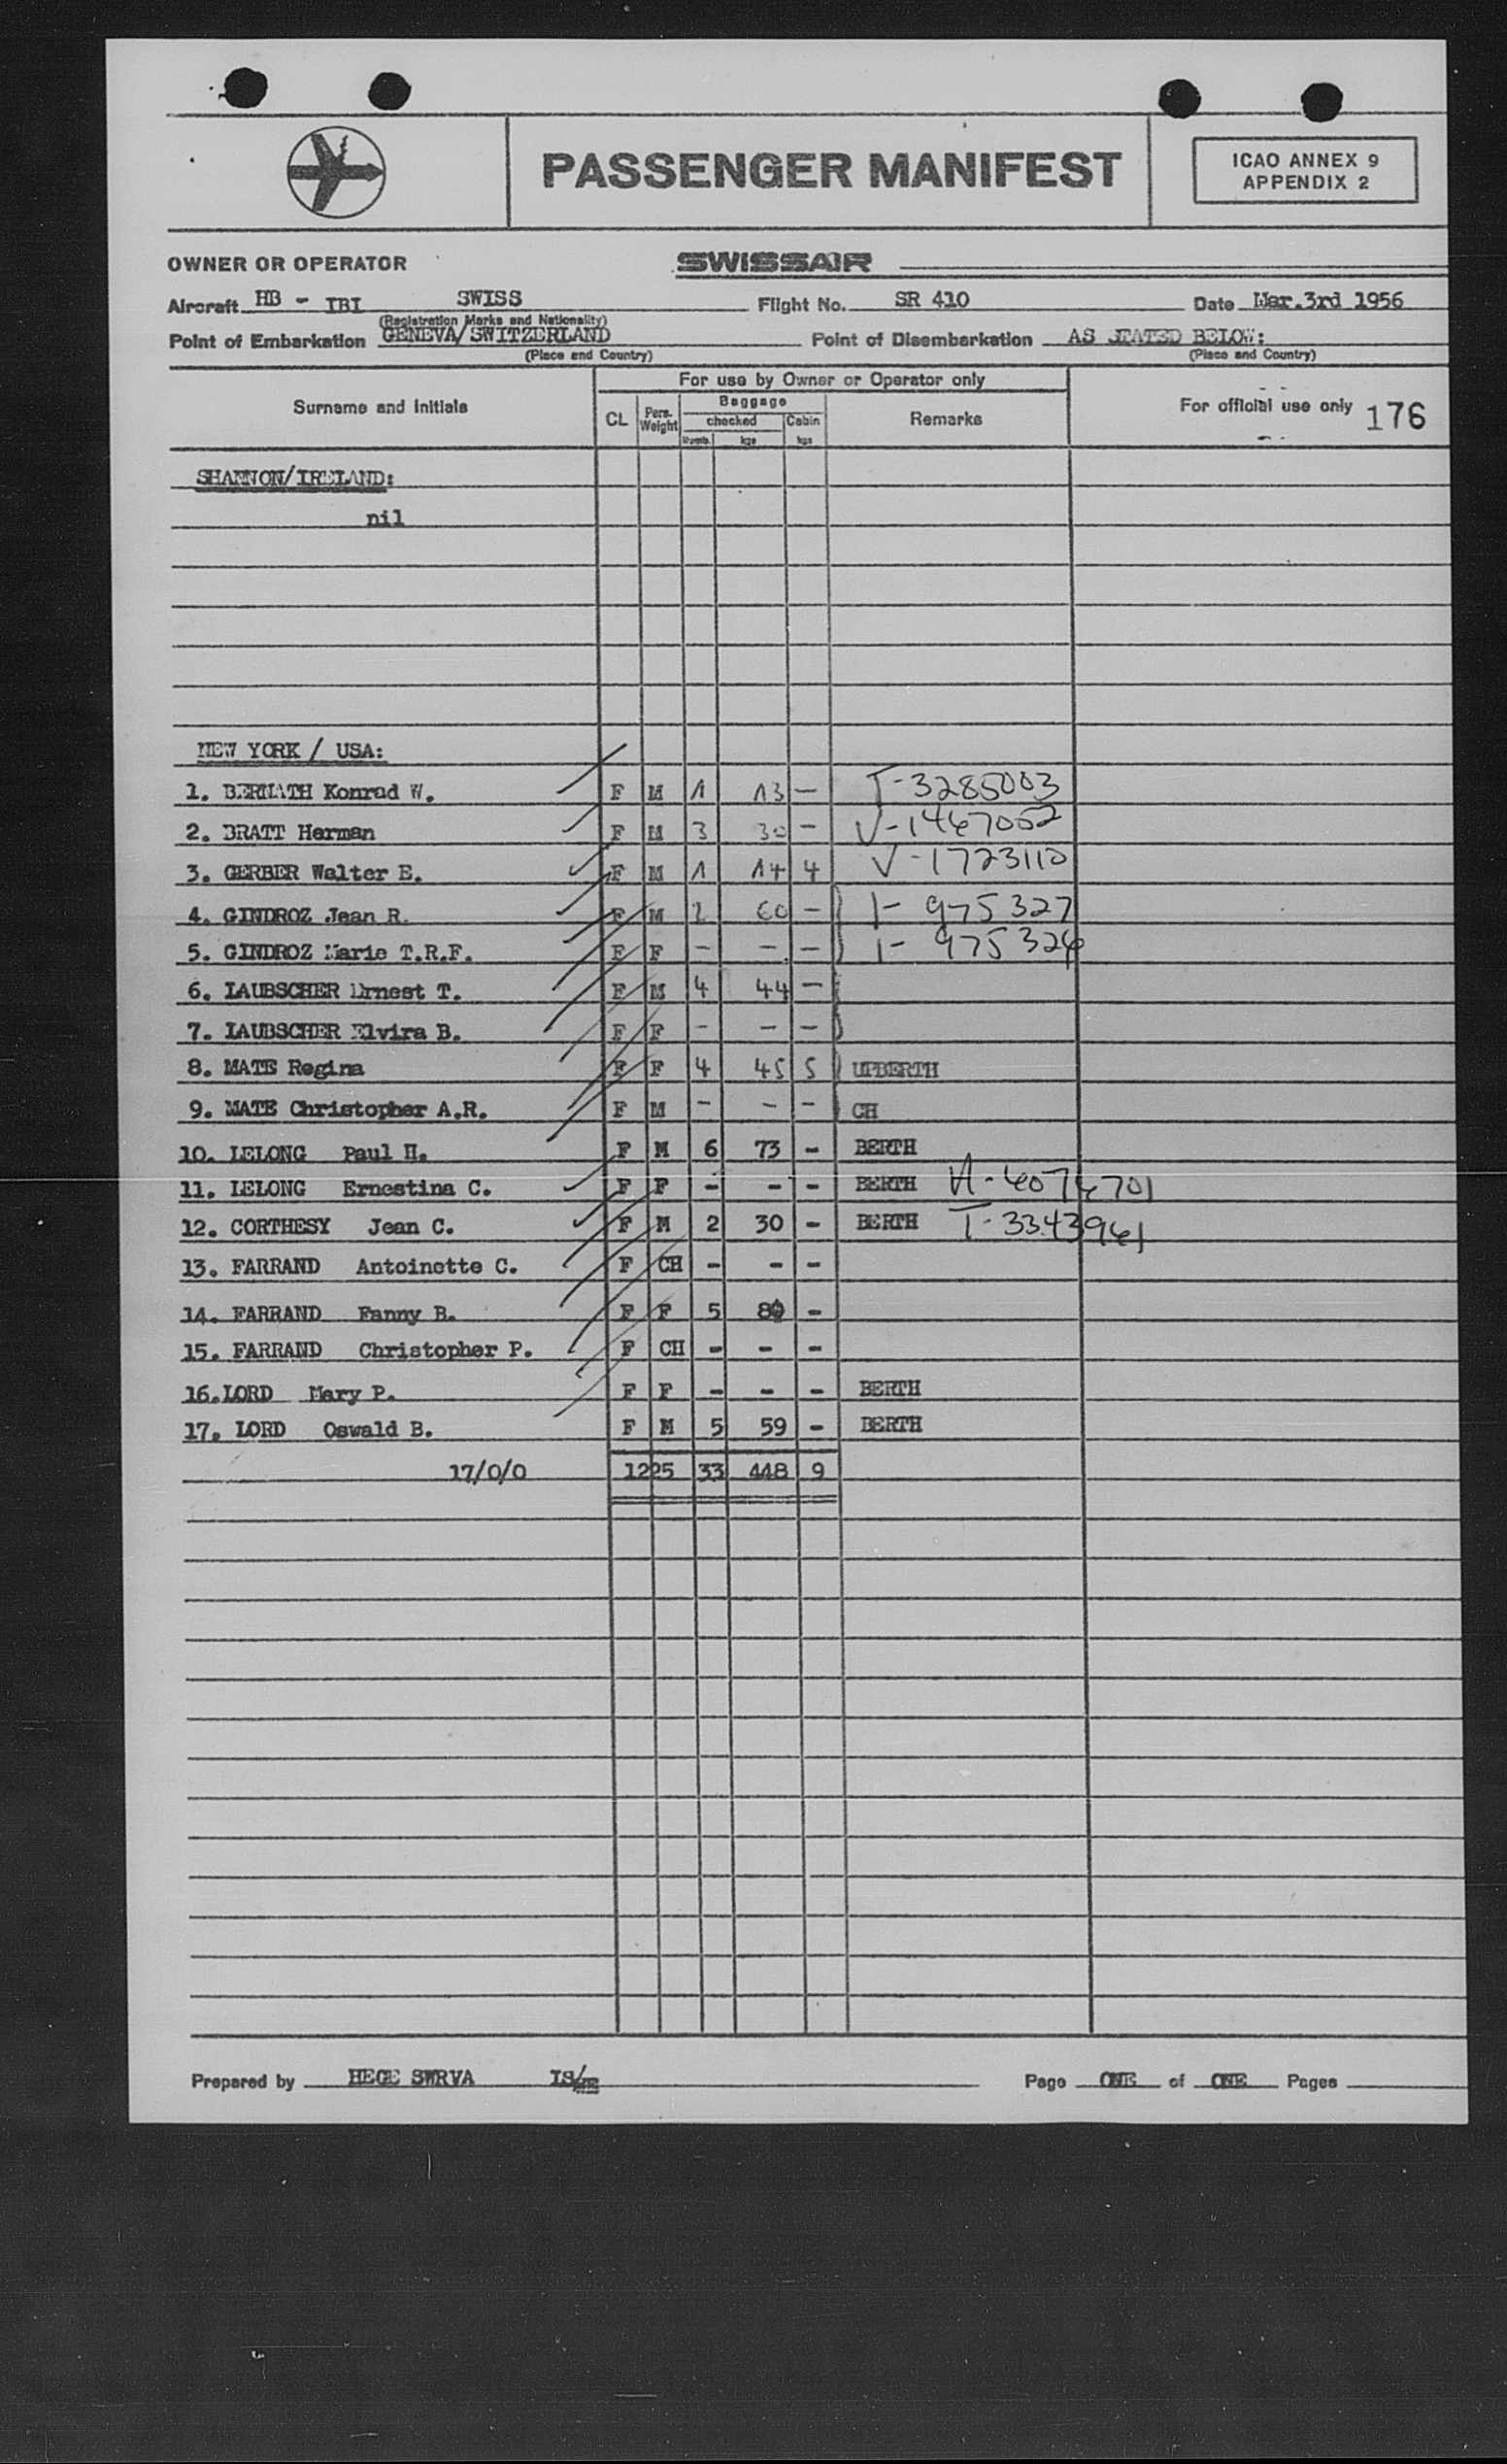 PASSENGER MANIFEST
ICAO ANNEX 9
APPENDIX 2
OWNER OR OPERATOR SWISSAIR
Aircraft HB - IBI SWISS Flight No. SR 410 Date Mar.3rd 1956
(Registration Marks and Nationality)
Point of Embarkation GENEVA/SWITZERLAND Point of Disembarkation AS STATED BELOW:
(Place and Country) (Place and Country)
For use by Owner or Operator only
Surname and Initials CL Pers. Weight Baggage checked Numb. kgs Cabin kgs Remarks For official use only 176
SHANNON/IRELAND:
nil
NEW YORK / USA:
1. BERNATH Konrad W. F M 1 13 - T-3285003
2. BRATT Herman F M 3 30 - V-1467052
3. GERBER Walter E. F M 1 14 4 V-1723110
4. GINDROZ Jean R. F M 2 60 - I- 975327
5. GINDROZ Marie T.R.F. F F - - - I- 975326
6. LAUBSCHER Ernest T. F M 4 44 -
7. LAUBSCHER Elvira B. F F - - -
8. MATE Regina F F 4 45 5 UPBERTH
9. MATE Christopher A.R. F M - - - CH
10. LELONG Paul H. F M 6 73 - BERTH
11. LELONG Ernestina C. F F - - - BERTH
12. CORTHESY Jean C. F M 2 30 - BERTH T-3343961
13. FARRAND Antoinette C. F CH - - -
14. FARRAND Fanny B. F F 5 80 -
15. FARRAND Christopher P. F CH - - -
16.LORD Mary P. F F - - - BERTH
17. LORD Oswald B. F M 5 59 - BERTH
17/0/0 1225 33 448 9
Prepared by HEGE SWRVA Page ONE of ONE Pages